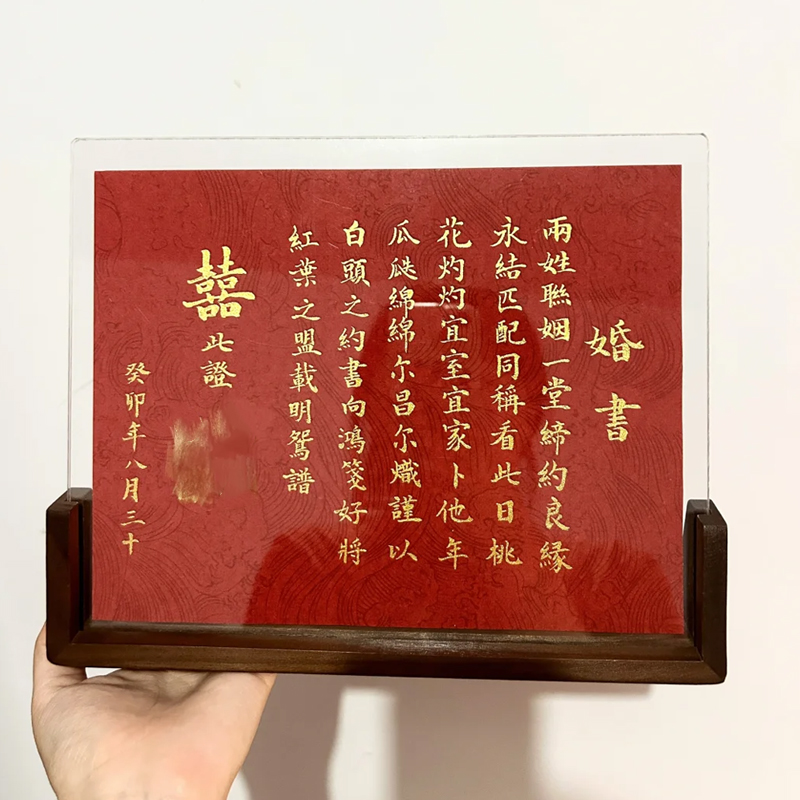 婚書
兩姓聯姻一堂締約良緣
永結匹配同稱看此日桃
花灼灼宜室宜家卜他年
瓜瓞綿綿尔昌尔熾謹以
白頭之約書向鴻箋好將
紅葉之盟載明鴛譜
囍此證
癸卯年八月三十